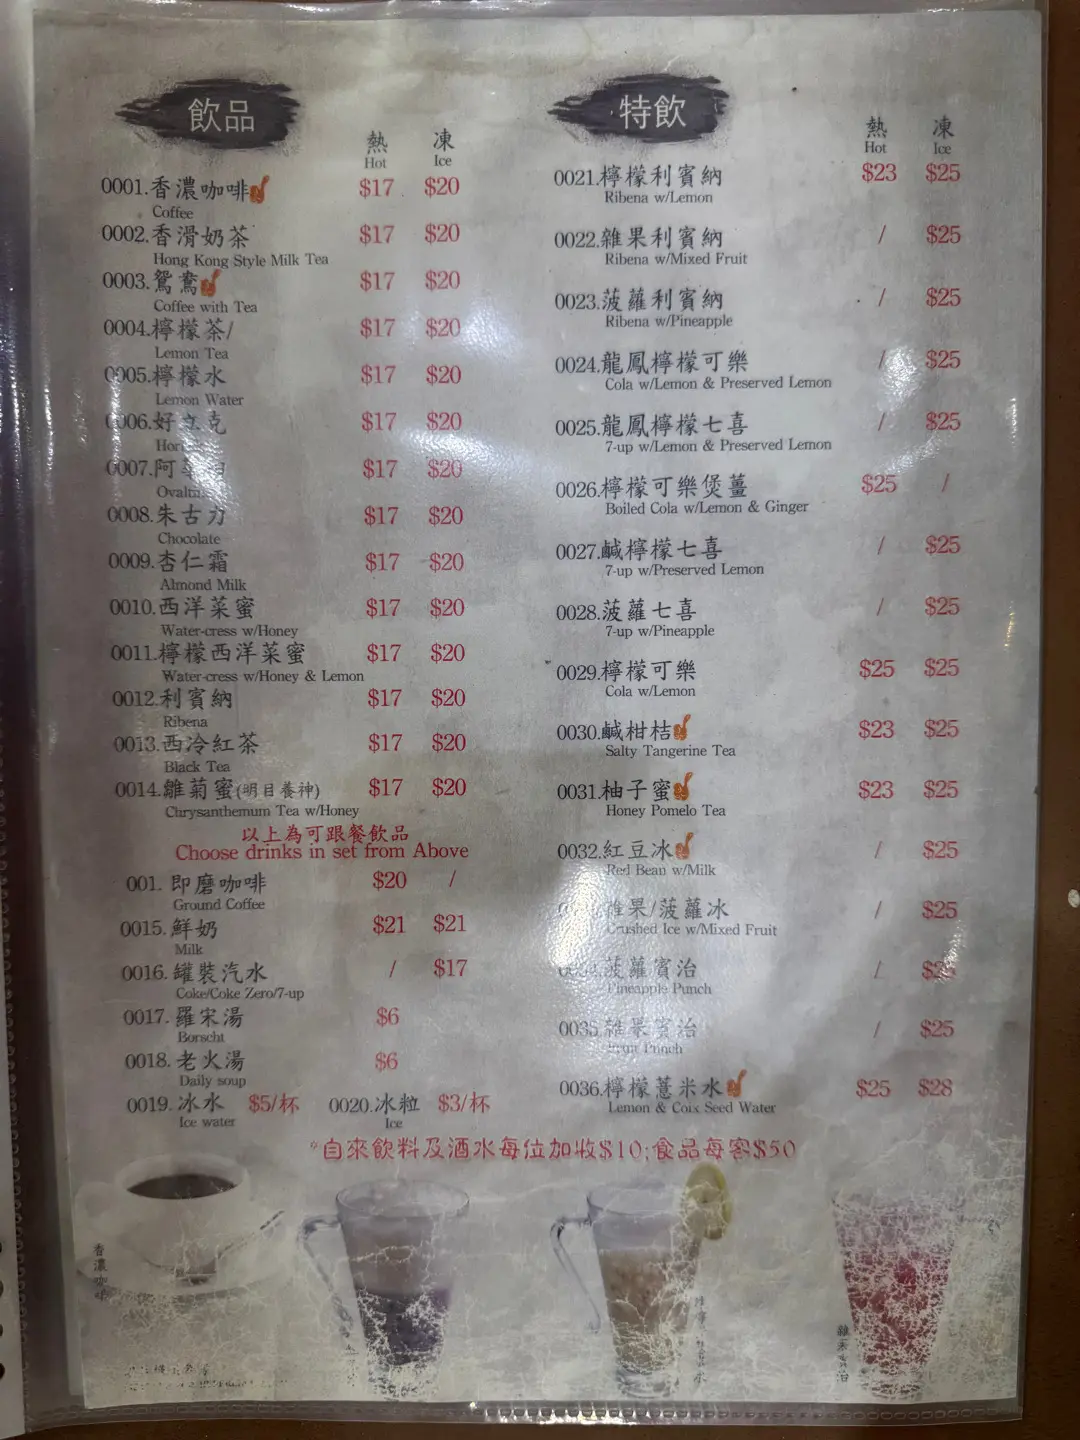 飲品
熱 凍
Hot Ice
0001.香濃咖啡 $17 $20
Coffee
0002.香滑奶茶 $17 $20
Hong Kong Style Milk Tea
0003.鴛鴦 $17 $20
Coffee with Tea
0004.檸檬茶/ $17 $20
Lemon Tea
0005.檸檬水 $17 $20
Lemon Water
0006.好立克 $17 $20
0007.阿華田 $17 $20
0008.朱古力 $17 $20
Chocolate
0009.杏仁霜 $17 $20
Almond Milk
0010.西洋菜蜜 $17 $20
Water-cress w/Honey
0011.檸檬西洋菜蜜 $17 $20
Water-cress w/Honey & Lemon
0012.利賓納 $17 $20
Ribena
0013.西冷紅茶 $17 $20
Black Tea
0014.雛菊蜜(明目養神) $17 $20
Chrysanthemum Tea w/Honey
以上為可跟餐飲品
Choose drinks in set from Above
001. 即磨咖啡 $20 /
Ground Coffee
0015. 鮮奶 $21 $21
Milk
0016. 罐裝汽水 / $17
Coke/Coke Zero/7-up
0017. 羅宋湯 $6
Borscht
0018. 老火湯 $6
Daily soup
0019. 冰水 $5/杯 0020.冰粒 $3/杯
Ice water Ice
特飲
熱 凍
Hot Ice
0021.檸檬利賓納 $23 $25
Ribena w/Lemon
0022.雜果利賓納 / $25
Ribena w/Mixed Fruit
0023.菠蘿利賓納 / $25
Ribena w/Pineapple
0024.龍鳳檸檬可樂 / $25
Cola w/Lemon & Preserved Lemon
0025.龍鳳檸檬七喜 / $25
7-up w/Lemon & Preserved Lemon
0026.檸檬可樂煲薑 $25 /
Boiled Cola w/Lemon & Ginger
0027.鹹檸檬七喜 / $25
7-up w/Preserved Lemon
0028.菠蘿七喜 / $25
7-up w/Pineapple
0029.檸檬可樂 $25 $25
Cola w/Lemon
0030.鹹柑桔 $23 $25
Salty Tangerine Tea
0031.柚子蜜 $23 $25
Honey Pomelo Tea
0032.紅豆冰 / $25
Red Bean w/Milk
雜果/菠蘿冰 / $25
Crushed Ice w/Mixed Fruit
菠蘿賓治 / $25
Pineapple Punch
0035.雜果賓治 / $25
Fruit Punch
0036.檸檬薏米水 $25 $28
Lemon & Coix Seed Water
*自來飲料及酒水每位加收$10;食品每客$50
香濃咖啡
雜果賓治